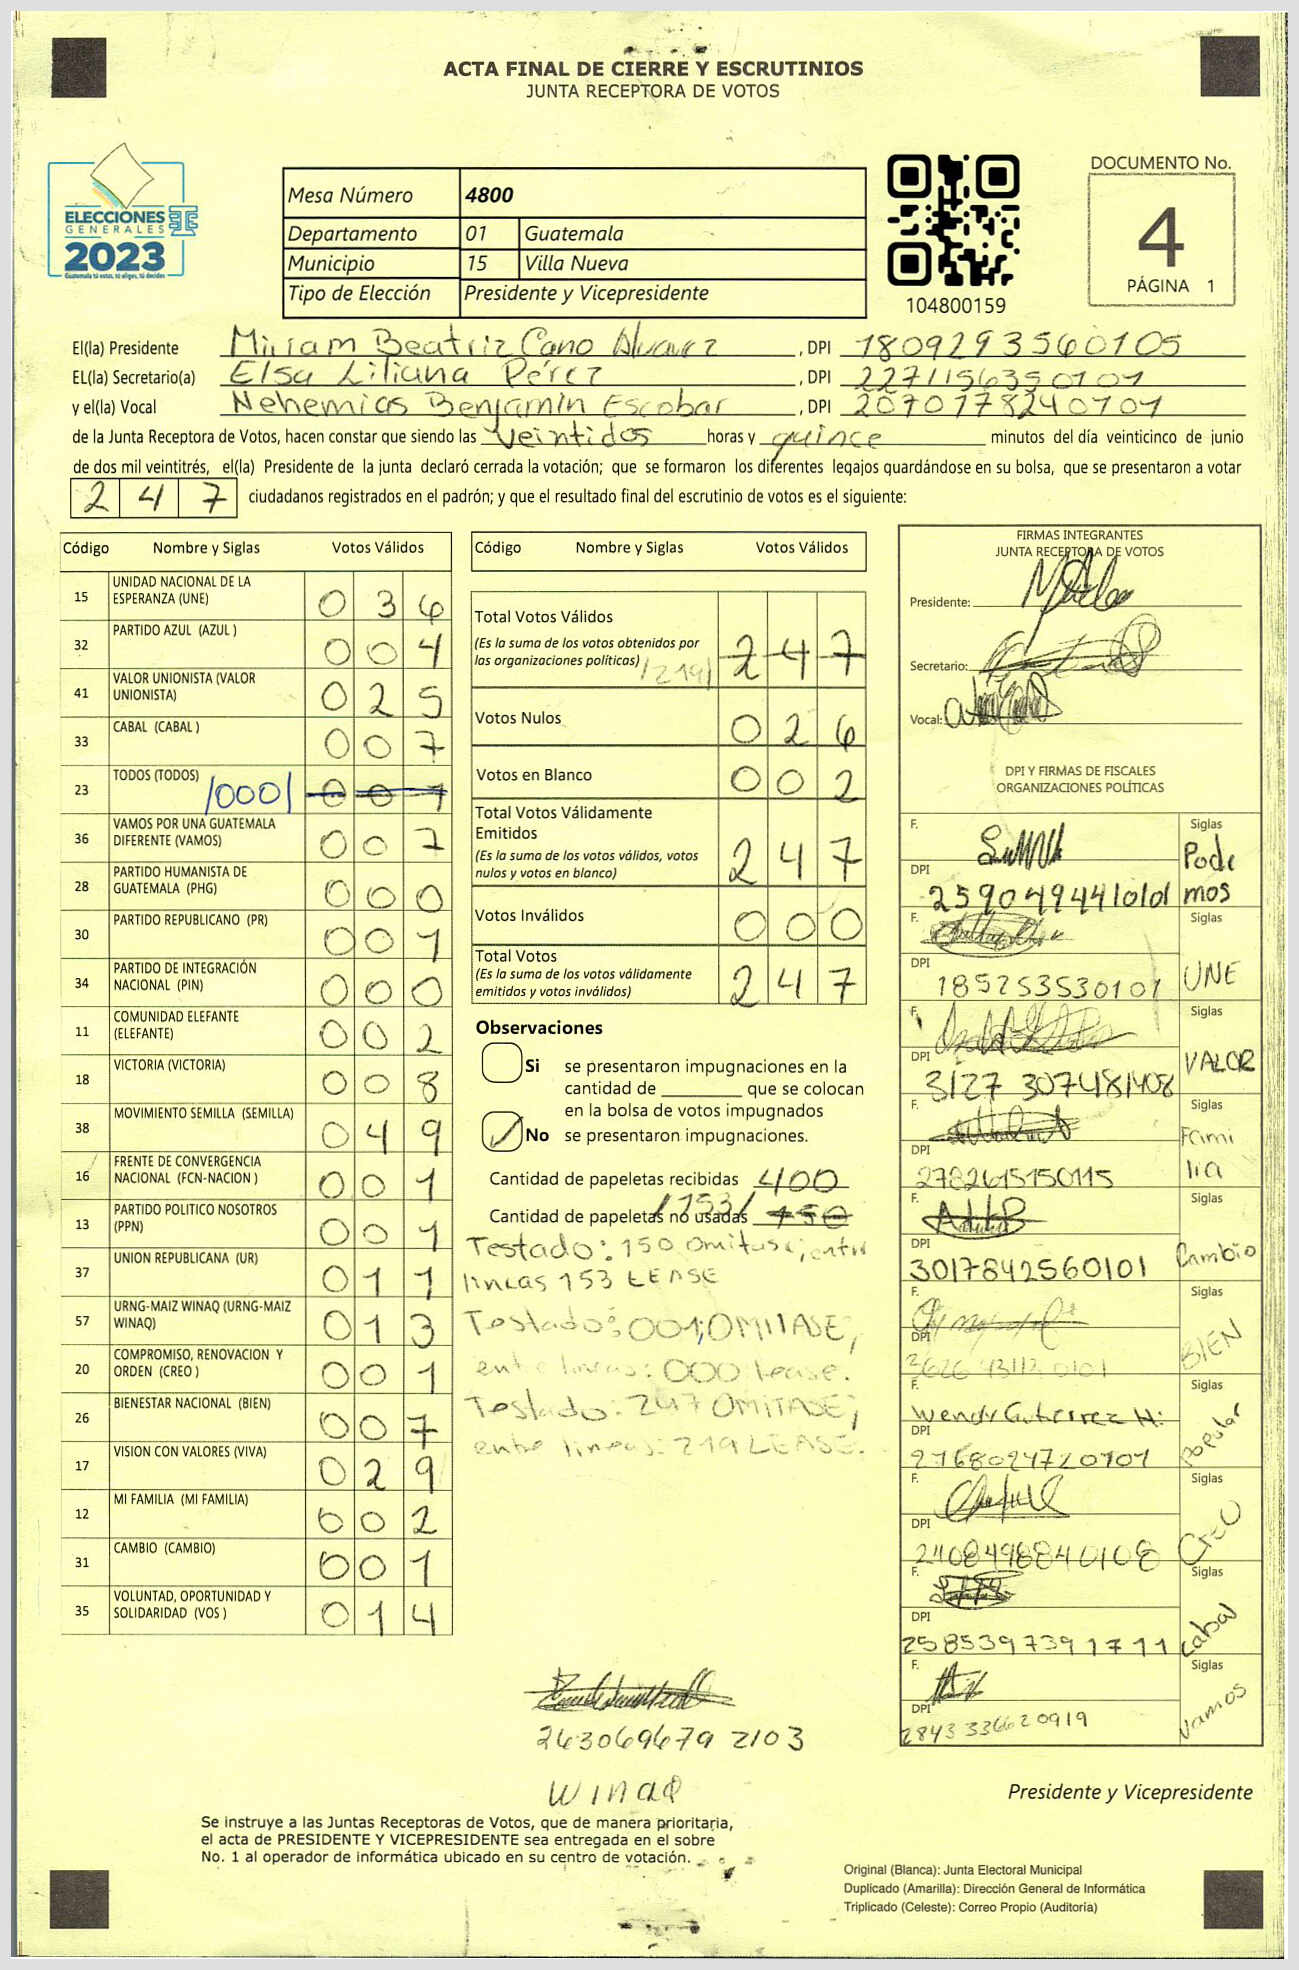 ACTA FINAL DE CIERRE Y ESCRUTINIOS
JUNTA RECEPTORA DE VOTOS
ELECCIONES
GENERALES
2023
Guatemala tú votas, tú eliges, tú decides
Mesa Número 4800
Departamento 01 Guatemala
Municipio 15 Villa Nueva
Tipo de Elección Presidente y Vicepresidente
104800159
DOCUMENTO No.
4
PÁGINA 1
El(la) Presidente Miriam Beatriz Cano Alvarez, DPI 1809293560105
EL(la) Secretario(a) Elsa Liliana Pérez, DPI 2271156350101
y el(la) Vocal Nehemias Benjamin Escobar, DPI 2070178240101
de la Junta Receptora de Votos, hacen constar que siendo las veintidos horas y quince minutos del día veinticinco de junio
de dos mil veintitrés, el(la) Presidente de la junta declaró cerrada la votación; que se formaron los diferentes legajos guardándose en su bolsa, que se presentaron a votar
247 ciudadanos registrados en el padrón; y que el resultado final del escrutinio de votos es el siguiente:
Código Nombre y Siglas Votos Válidos
15 UNIDAD NACIONAL DE LA ESPERANZA (UNE) 036
32 PARTIDO AZUL (AZUL ) 004
41 VALOR UNIONISTA (VALOR UNIONISTA) 025
33 CABAL (CABAL ) 007
23 TODOS (TODOS) /000/ 001
36 VAMOS POR UNA GUATEMALA DIFERENTE (VAMOS) 007
28 PARTIDO HUMANISTA DE GUATEMALA (PHG) 000
30 PARTIDO REPUBLICANO (PR) 001
34 PARTIDO DE INTEGRACIÓN NACIONAL (PIN) 000
11 COMUNIDAD ELEFANTE (ELEFANTE) 002
18 VICTORIA (VICTORIA) 008
38 MOVIMIENTO SEMILLA (SEMILLA) 049
16 FRENTE DE CONVERGENCIA NACIONAL (FCN-NACION ) 001
13 PARTIDO POLITICO NOSOTROS (PPN) 001
37 UNION REPUBLICANA (UR) 011
57 URNG-MAIZ WINAQ (URNG-MAIZ WINAQ) 013
20 COMPROMISO, RENOVACION Y ORDEN (CREO ) 001
26 BIENESTAR NACIONAL (BIEN) 007
17 VISION CON VALORES (VIVA) 029
12 MI FAMILIA (MI FAMILIA) 002
31 CAMBIO (CAMBIO) 001
35 VOLUNTAD, OPORTUNIDAD Y SOLIDARIDAD (VOS ) 014
Código Nombre y Siglas Votos Válidos
Total Votos Válidos
(Es la suma de los votos obtenidos por
las organizaciones políticas) /219/ 247
Votos Nulos 026
Votos en Blanco 002
Total Votos Válidamente
Emitidos
(Es la suma de los votos válidos, votos
nulos y votos en blanco) 247
Votos Inválidos 000
Total Votos
(Es la suma de los votos válidamente
emitidos y votos inválidos) 247
Observaciones
Si se presentaron impugnaciones en la
cantidad de ________ que se colocan
en la bolsa de votos impugnados
No se presentaron impugnaciones.
Cantidad de papeletas recibidas 400
Cantidad de papeletas no usadas /153/ 150
Testado: 150 omitase; entre
lineas 153 LEASE
Testado: 001; OMITASE;
entre lineas: 000 Lease.
Testado: 247 OMITASE;
entre lineas: 219 LEASE.
FIRMAS INTEGRANTES
JUNTA RECEPTORA DE VOTOS
Presidente:
Secretario:
Vocal:
DPI Y FIRMAS DE FISCALES
ORGANIZACIONES POLÍTICAS
F. Siglas
DPI 2590494410101 Podemos
F. Siglas
DPI 185253530101 UNE
F. Siglas
DPI 3127 307481408 VALOR
F. Siglas
DPI 2782615150115 Familia
F. Siglas
DPI 3017842560101 Cambio
F. Siglas
DPI BIEN
F. Wendy Gutierrez H. Siglas
DPI 2168024720101 Popular
F. Siglas
DPI 2408498840108 Creo
F. Siglas
DPI 2585397391711 Cabal
F. Siglas
DPI 2843 336620919 Vamos
263069679 2103
WINAQ
Presidente y Vicepresidente
Se instruye a las Juntas Receptoras de Votos, que de manera prioritaria,
el acta de PRESIDENTE Y VICEPRESIDENTE sea entregada en el sobre
No. 1 al operador de informática ubicado en su centro de votación.
Original (Blanca): Junta Electoral Municipal
Duplicado (Amarilla): Dirección General de Informática
Triplicado (Celeste): Correo Propio (Auditoría)